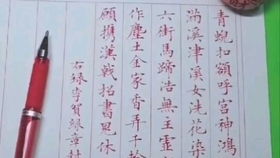 青蜺扣額呼宫神鴻
滿溪津溪女洗花染
六街馬蹄浩無主
作塵土金家香弄千
願攜漢戟招書鬼休
右録李賀緑章封